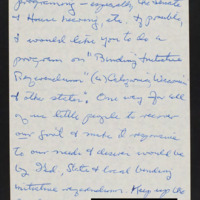 programing – especially the Senate
& House hearing, etc. If possible,
I would like you to do a
program on "Binding Initiative
Referendum" (a) California Wiscon
& other states. One way for all
of us little people to recover
our govt & make it responsive
to our needs & desires would be
by Fed, State & local binding
initiative referendum. Keep up the